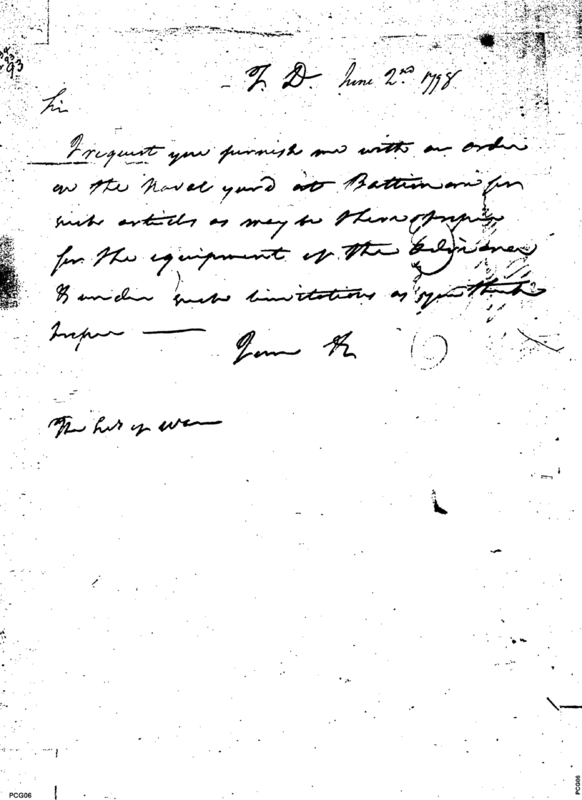 93
T. D. June 2nd 1798
Sir
I request you furnish me with an order
on the Naval yard at Baltimore for
such articles as may be there
for the equipment of the
& under such limitations as you think
proper
Yours &c
The Sec of War
PCG06
PCG06